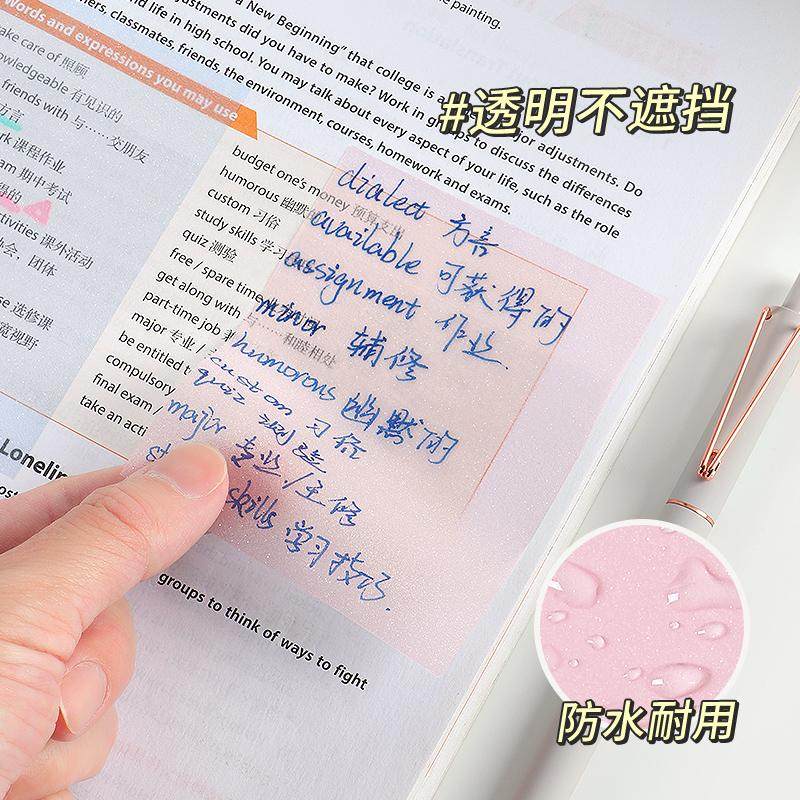 the painting.
a New Beginning" that college is a
major adjustments. Do
justments did you have to make? Work in groups to discuss the differences
and life in high school. You may talk about every aspect of your life, such as the role
ners, classmates, friends, the environment, courses, homework and exams.
#透明不遮挡
Words and expressions you may use
take care of 照顾
knowledgeable 有见识的
friends with 与……交朋友
方言
课程作业
期中考试
得的
activities 课外活动
团体
选修课
宽视野
budget one's money 预算支出
humorous 幽默的
custom 习俗
study skills 学习
quiz 测验
free / spare time
get along with 与……和睦相处
part-time job
major 专业 /
be entitled t
compulsory
final exam /
take an acti
dialect 方言
available 可获得的
assignment 作业
minor 辅修
humorous 幽默的
custom 习俗
quiz 测验
major 专业/主修
skills 学习技巧
Lonelin
groups to think of ways to fight
防水耐用